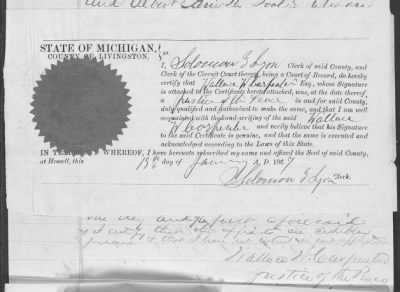 and Albert
STATE OF MICHIGAN, } ss.
COUNTY OF LIVINGSTON,
I, Solomon G Lyon Clerk of said County, and
Clerk of the Circuit Court thereof, being a Court of Record, do hereby
certify that Wallace W Carpenter Esq., whose Signature
is attached to the Certificate hereto attached, was, at the date thereof
a Justice of the Peace in and for said County,
duly qualified and authorized to make the same, and that I am well
acquainted with the hand-writing of the said Wallace
W Carpenter and verily believe that his Signature
to the said Certificate is genuine, and that the same is executed and
acknowledged according to the Laws of this State.
IN WHEREOF, I have hereunto subscribed my name and affixed the Seal of said County
at Howell, this 18th day of January A. D. 1867
Solomon G Lyon Clerk.
and aforesaid
I certify that the are credible
persons & that I have no interest in said application
Wallace W. Carpenter
Justice of the Peace